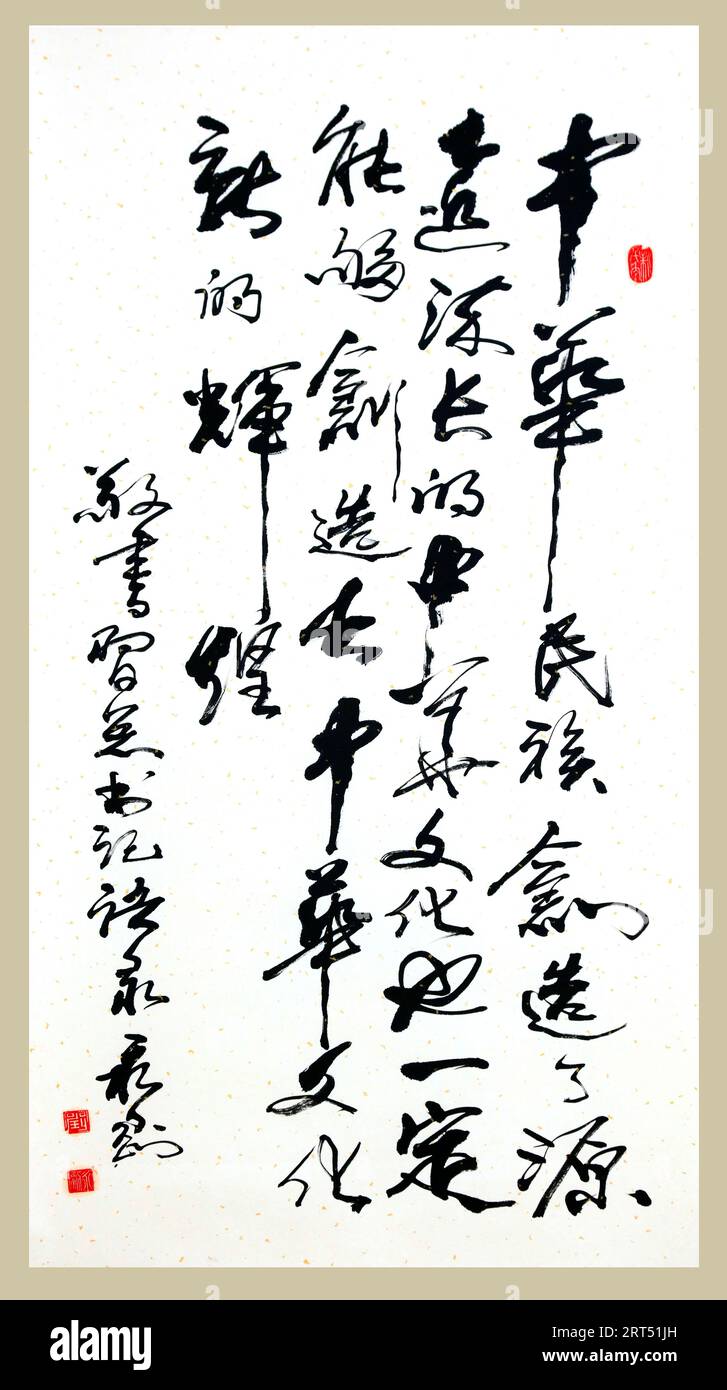 中華民族創造了源
遠流长的中华文化也一定
能够創造出中華文化
新的輝煌
敬書習总书记语录
alamy
Image ID: 2RT51JH
www.alamy.com